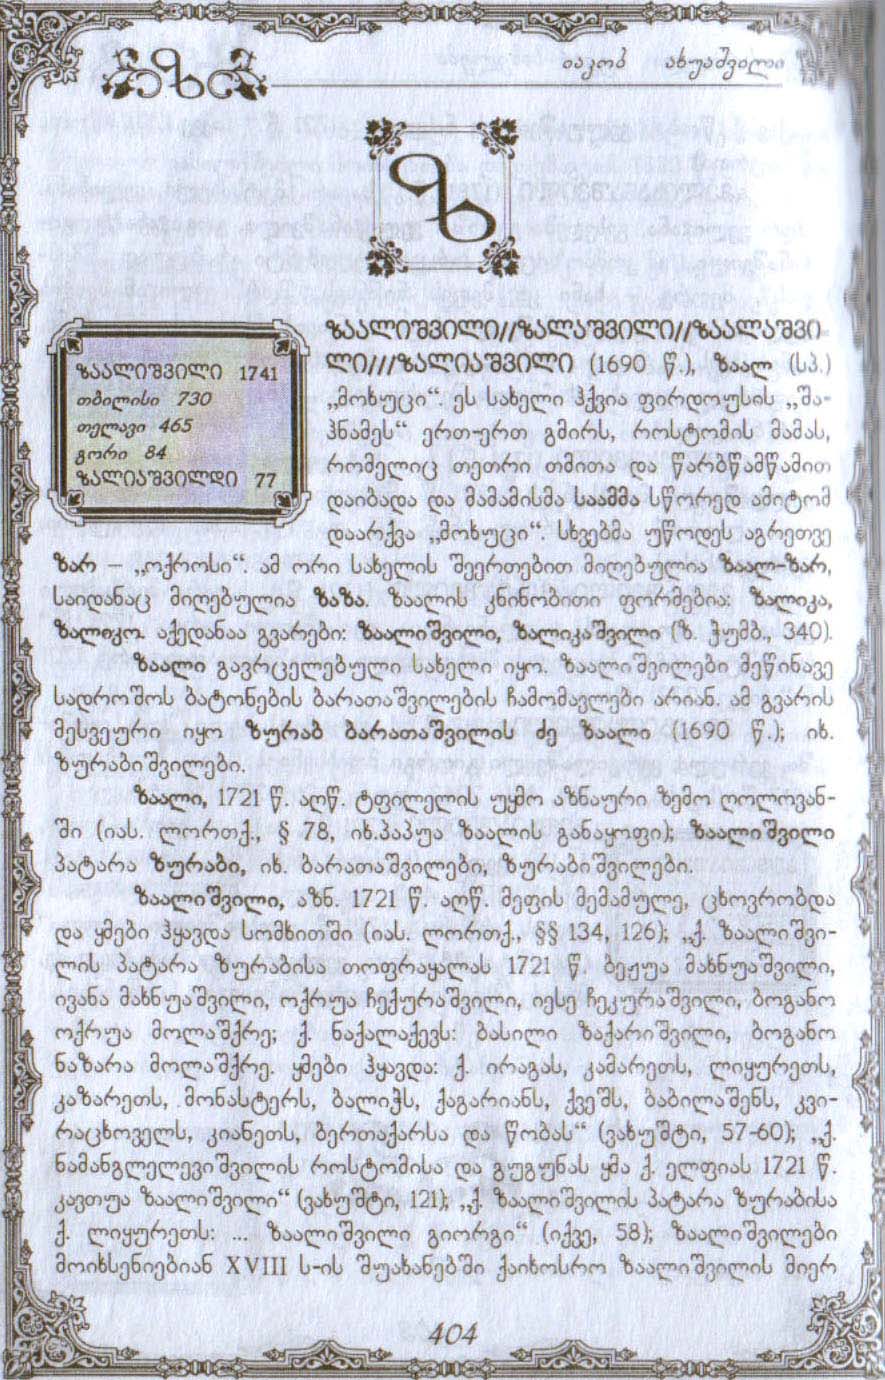 ზ
იაკობ ახუაშვილი
ზ
ზაალიშვილი//ზალაშვილი//ზაალაშვი-
ლი///ზალიაშვილი (1690 წ.), ზაალ (სპ.)
„მოხუცი“. ეს სახელი ჰქვია ფირდოუსის „შა-
ჰნამეს“ ერთ-ერთ გმირს, როსტომის მამას,
რომელიც თეთრი თმითა და წარბწამწამით
დაიბადა და მამამისმა საამმა სწორედ ამიტომ
დაარქვა „მოხუცი“. სხვებმა უწოდეს აგრეთვე
ზაალიშვილი 1741
თბილისი 730
თელავი 465
გორი 84
ზალიაშვილდი 77
ზარ – „ოქროსი“. ამ ორი სახელის შეერთებით მიღებულია ზაალ-ზარ,
საიდანაც მიღებულია ზაზა. ზაალის კნინობითი ფორმებია: ზალიკა,
ზალიკო. აქედანაა გვარები: ზაალიშვილი, ზალიკაშვილი (ზ. ჭუმბ., 340).
ზაალი გავრცელებული სახელი იყო. ზაალიშვილები მეწინავე
სადროშოს ბატონების ბარათაშვილების ჩამომავლები არიან. ამ გვარის
მესვეური იყო ზურაბ ბარათაშვილის ძე ზაალი (1690 წ.); იხ.
ზურაბიშვილები.
ზაალი, 1721 წ. აღწ. ტფილელის უყმო აზნაური ზემო ღოლოვან-
ში (იას. ლორთქ., § 78, იხ.პაპუა ზაალის განაყოფი); ზაალიშვილი
პატარა ზურაბი, იხ. ბარათაშვილები, ზურაბიშვილები.
ზაალიშვილი, აზნ. 1721 წ. აღწ. მეფის მემამულე, ცხოვრობდა
და ყმები ჰყავდა სომხითში (იას. ლორთქ., §§ 134, 126); „ქ. ზაალიშვი-
ლის პატარა ზურაბისა თოფრაყალას 1721 წ. ბეჟუა მახნუაშვილი,
ივანა მახნუაშვილი, ოქრუა ჩექურაშვილი, იესე ჩეკურაშვილი, ბოგანო
ოქრუა მოლაშქრე; ქ. ნაქალაქევს: ბასილი ზაქარიშვილი, ბოგანო
ნაზარა მოლაშქრე. ყმები ჰყავდა: ქ. ირაგას, კამარეთს, ლიყურეთს,
კაზარეთს, მონასტერს, ბალიჭს, ქაგარიანს, ქვეშს, ბაბილაშენს, კვი-
რაცხოველს, კიანეთს, ბერთაქარსა და წობას“ (ვახუშტი, 57-60); „ქ.
ნამანგლელევიშვილის როსტომისა და გუგუნას ყმა ქ. ელფიას 1721 წ.
კავთუა ზაალიშვილი“ (ვახუშტი, 121); „ქ. ზაალიშვილის პატარა ზურაბისა
ქ. ლიყურეთს: ... ზაალიშვილი გიორგი“ (იქვე, 58); ზაალიშვილები
მოიხსენიებიან XVIII ს-ის შუახანებში ქაიხოსრო ზაალიშვილის მიერ
404